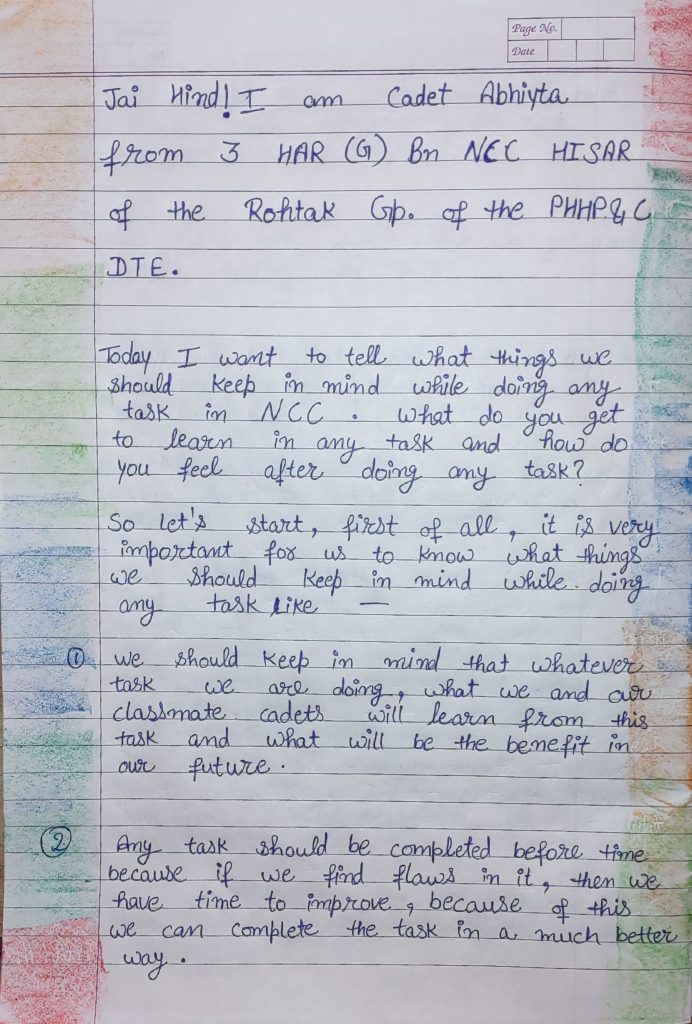 Page No.
Date
Jai Hind! I am Cadet Abhiyta
from 3 HAR (G) Bn NCC HISAR
of the Rohtak Gp. of the PHHP & C
DTE.
Today I want to tell what things we
should keep in mind while doing any
task in NCC. What do you get
to learn in any task and how do
you feel after doing any task?
So let's start, first of all, it is very
important for us to know what things
we should keep in mind while doing
any task like —
① we should keep in mind that whatever
task we are doing, what we and our
classmate cadets will learn from this
task and what will be the benefit in
our future.
② Any task should be completed before time
because if we find flaws in it, then we
have time to improve, because of this
we can complete the task in a much better
way.